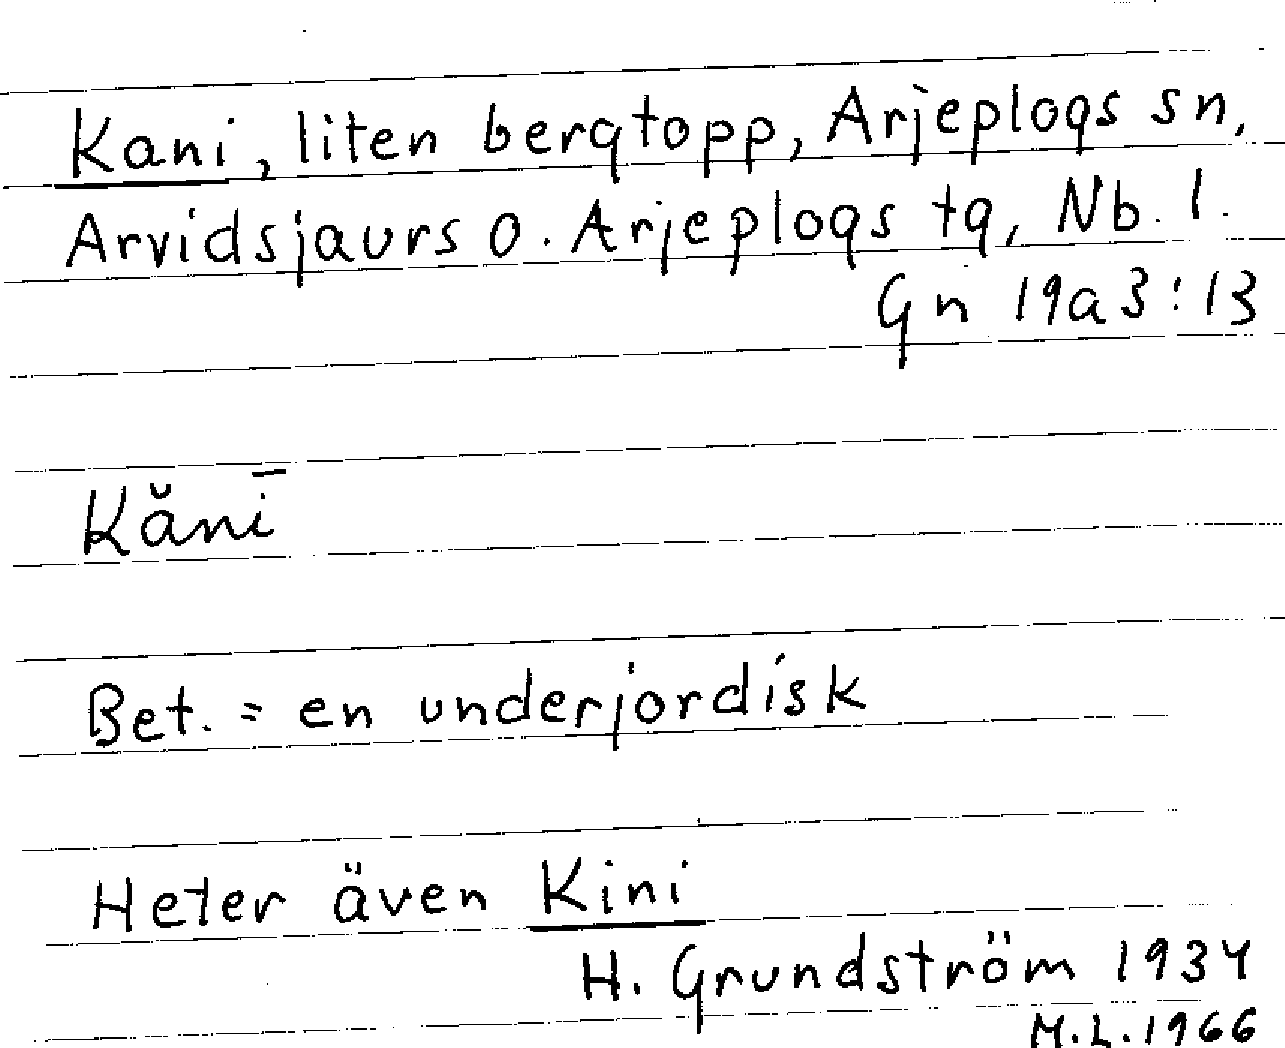 Kani, liten bergtopp, Arjeplogs sn,
Arvidsjaurs o. Arjeplogs tg, Nb. l.
Gn 19a3:13
Kănī
Bet. = en underjordisk
Heter även Kini
H. Grundström 1934
M.L.1966